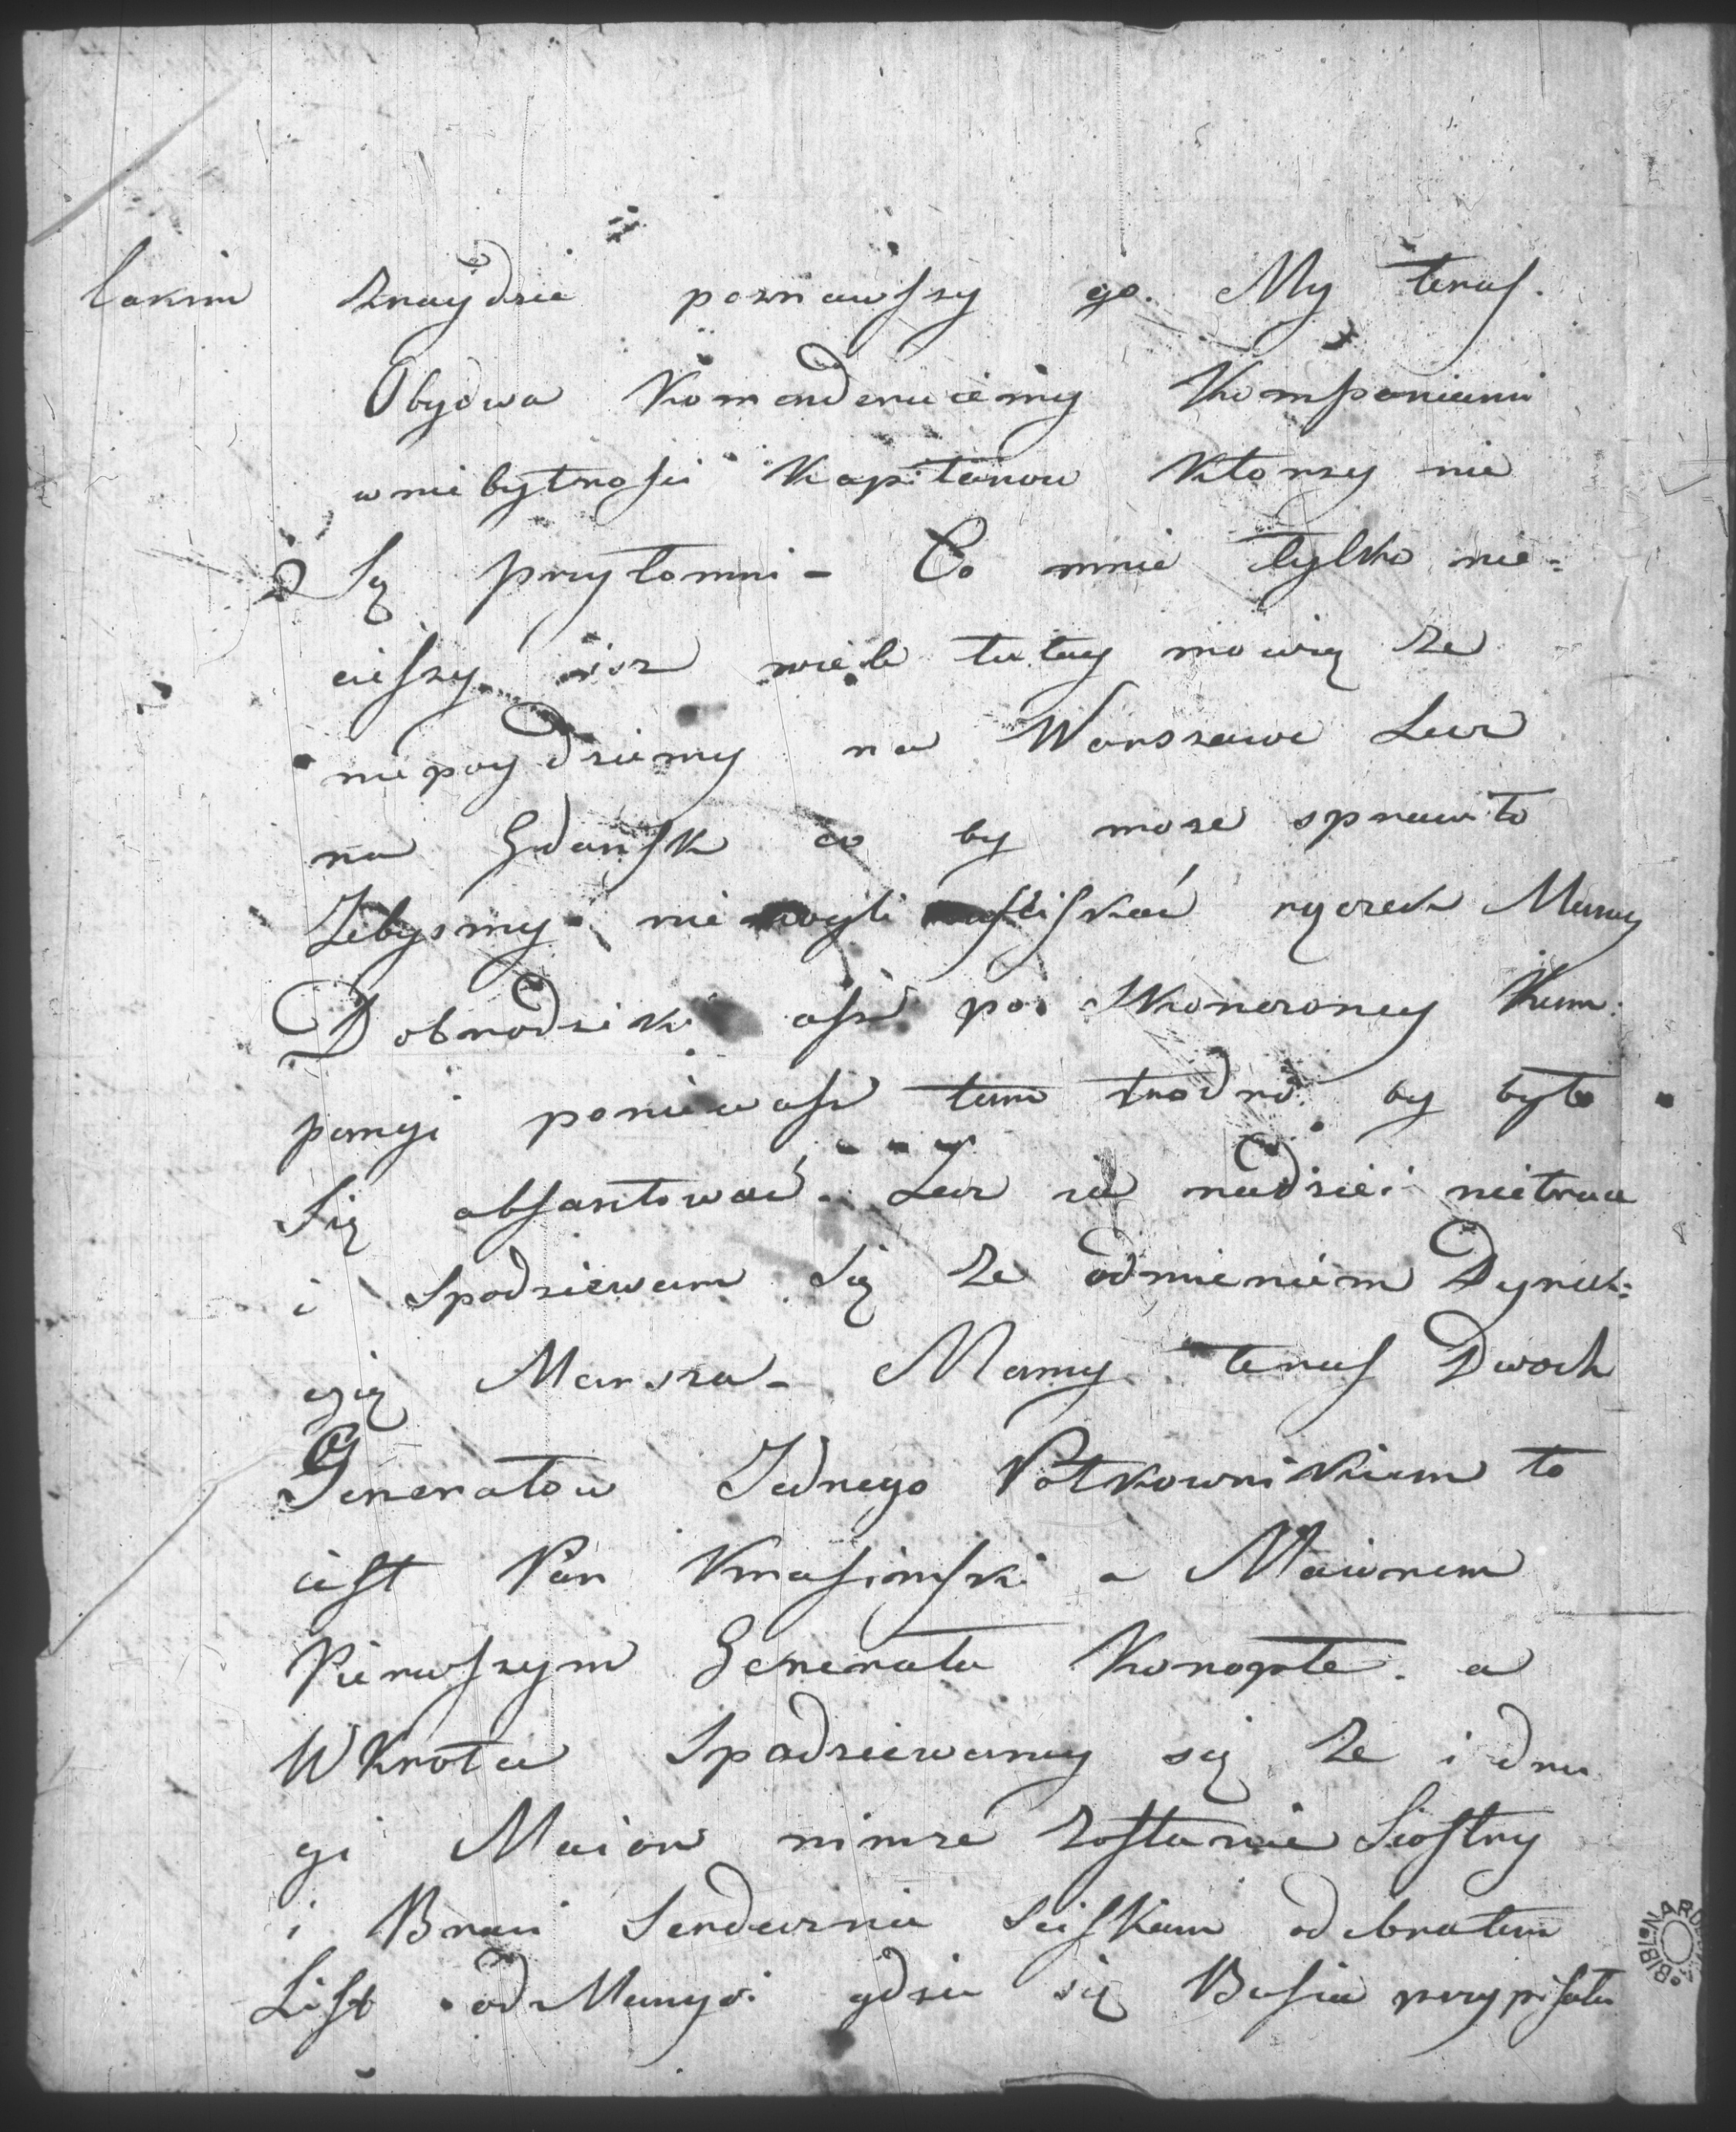 takim znaydzie poznawszy go. My teras.
Obydwa Komenderuiemy Kompaniami
w nie bytnosci Kapitanow Ktorzy nie
Są przytomni - Co mnie tylko nie=
cieszy isz wiele tutay mowią ze
nie poydziemy na Warszawe Lecz
na Gdansk co by moze sprawiło
Zebysmy nie mogli usciskać rączek Mamy
Dobrodziki asz po Skonczoney Kam:
panyi poniewasz tam trodno by było
Się absantować. Lecz ia nadziei nietrace
i Spodziewam Się Ze odmieniem Dyrek=
cyią Marsza - Mamy teras Dwoch
Generałow Jednego Połkownikiem to
iest Pan Krasinski a Maiorem
Pierwszym Generała Konopke. a
W Krotce Spodziewamy się Ze i dru
gi Maior nimze zostanie Siostry
i Braci Serdecznie Sciskam odebrałem
List od Mamyi gdzie się Busia przypisała
BIBL. NAROD.